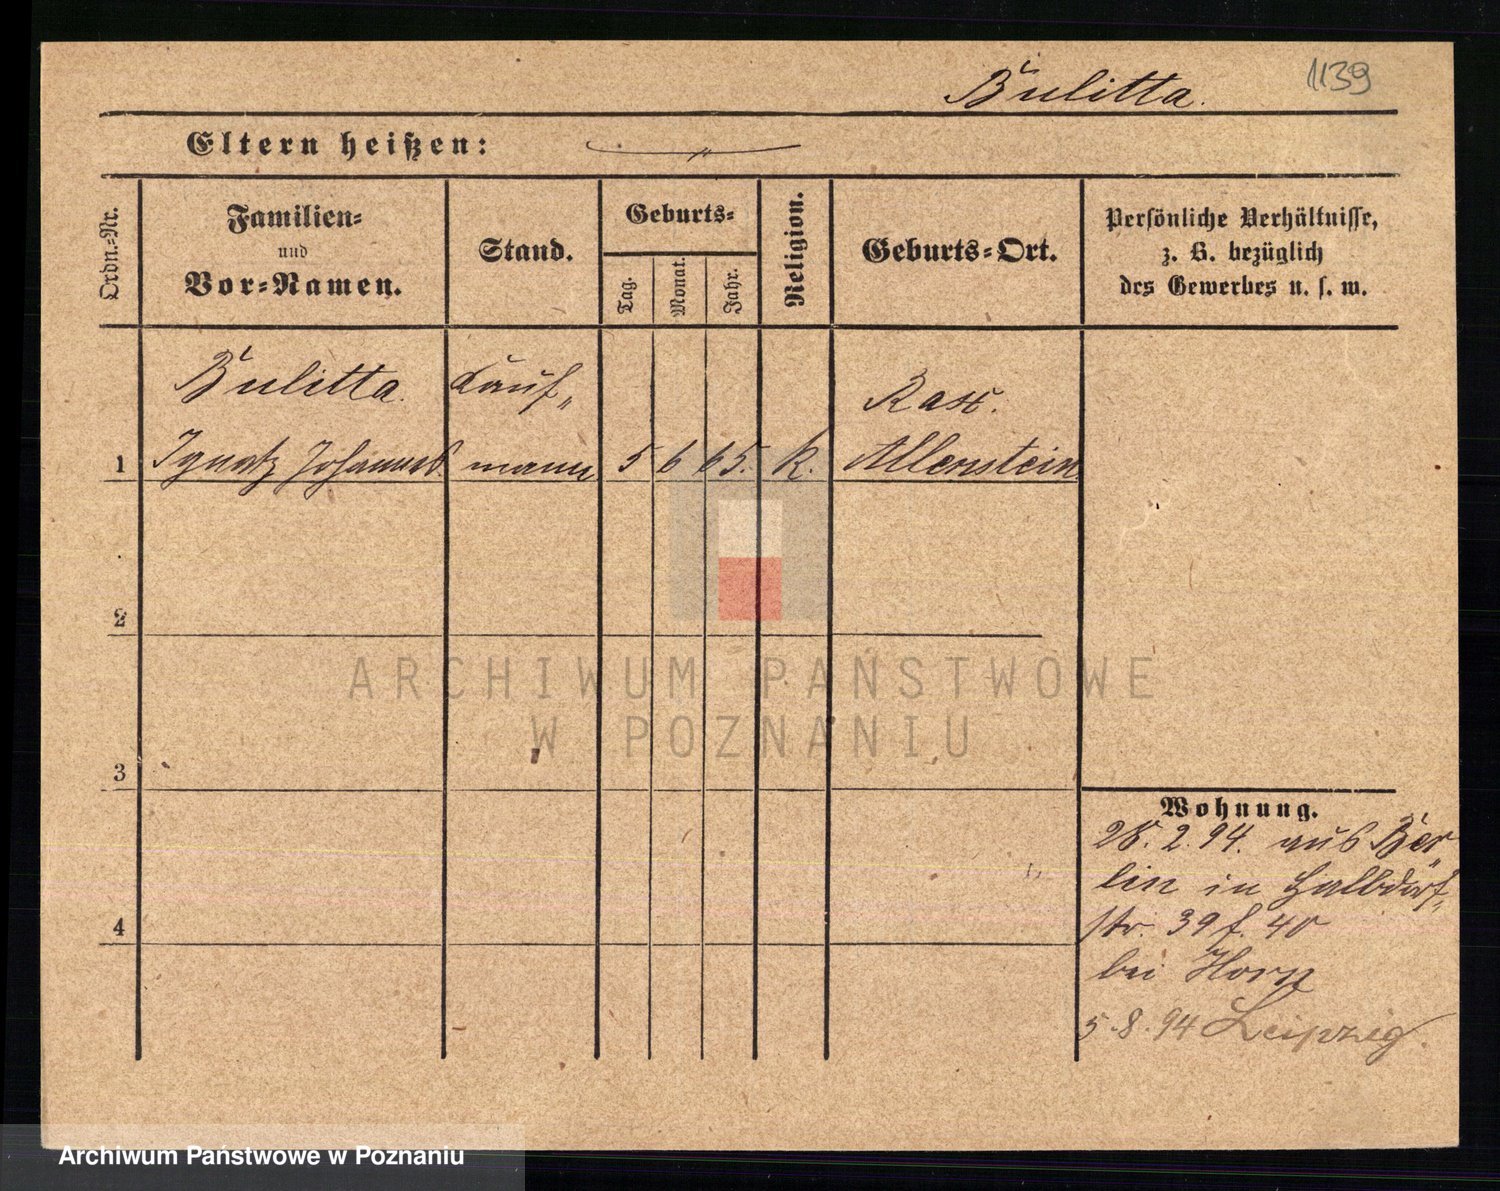 Bulitta.
1139
Eltern heißen:
Ordn.-Nr.
Familien-
und
Vor-Namen.
Stand.
Geburts-
Tag.
Monat.
Jahr.
Religion.
Geburts-Ort.
Persönliche Verhältnisse,
z. B. bezüglich
des Gewerbes u. s. w.
Bulitta. Kauf-
1 Ignatz Johannes. mann 5 6 65. k. Allenstein
2
3
4
Wohnung.
28. 2. 94. aus Ber
lin in Halbdorf-
str. 39 f. 40
bei Horn
5. 8. 94 Leipzig.
ARCHIWUM PAŃSTWOWE
W POZNANIU
Archiwum Państwowe w Poznaniu